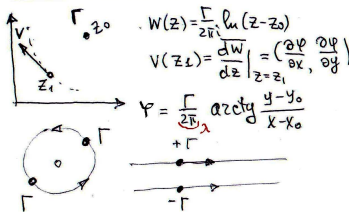 Γ
z₀
V
z₁
W(z) = Γ/2πi ln(z-z₀)
V(z₁) = dW/dz |z=z₁ = (∂φ/∂x, ∂φ/∂y)
φ = Γ/2π arctg y-y₀/x-x₀
λ
Γ
Γ
+Γ
-Γ